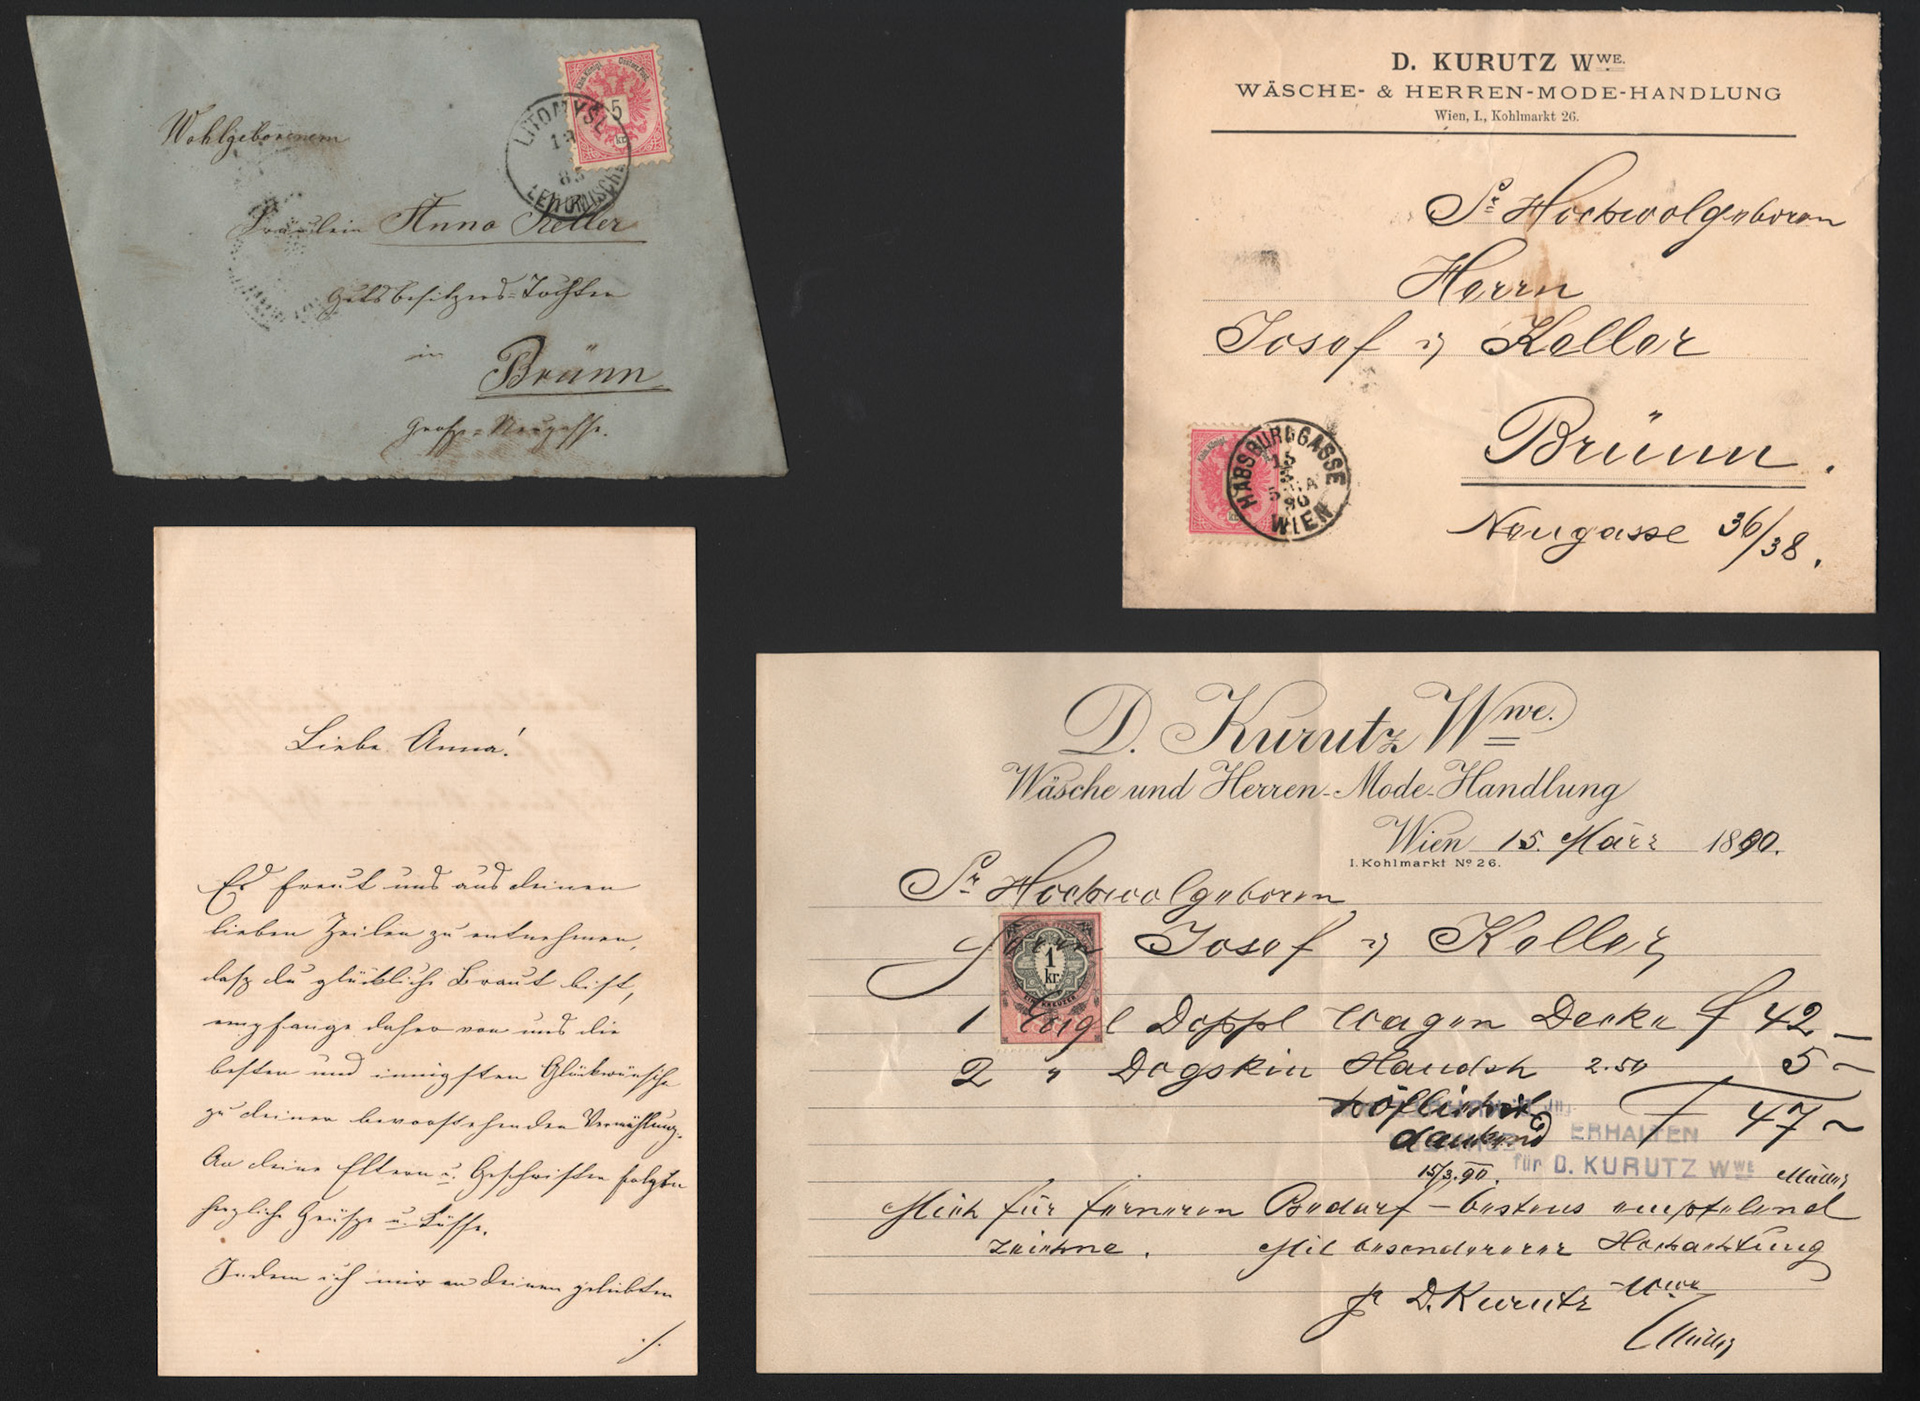 Wohlgeborenem
Fräulein Anna Keller
Gutsbesitzers-Tochter
in
Brünn
Große-Neugasse.
5
kr
LITOMYŠL
85
LEITOMISCHL
D. KURUTZ WWE.
WÄSCHE- & HERREN-MODE-HANDLUNG
Wien, I., Kohlmarkt 26.
Sr Hochwolgeboren
Herrn
Josef v Keller
Brünn.
Neugasse 36/38.
HABSBURGGASSE
15
3
90
WIEN
Liebe Anna!
Es freut uns aus deinen
lieben Zeilen zu entnehmen,
daß du glückliche Braut bist,
empfange daher von uns die
besten und innigsten Glückwünsche
zu deiner bevorstehenden Vermählung.
An deine Eltern u. Geschwister folgen
herzliche Grüße u. Küsse.
Indem ich mir an deinen geliebten
./.
D. Kurutz Wwe.
Wäsche und Herren-Mode-Handlung
Wien 15. März 1890.
I. Kohlmarkt No 26.
Sr Hochwolgeboren
Herrn Josef v Keller
1 kr.
EIN KREUZER
1 Engl Doppl Wagen Decke f 42 —
2 " Dogskin Handsch 2.50 5 —
höflichst f 47 —
dankend ERHALTEN
für D. KURUTZ WWE
15/3.90. Müller
Mich für ferneren Bedarf – bestens empfelend
zeichne. Mit besonderer Hochachtung
pr D. Kurutz Wwe
Müller